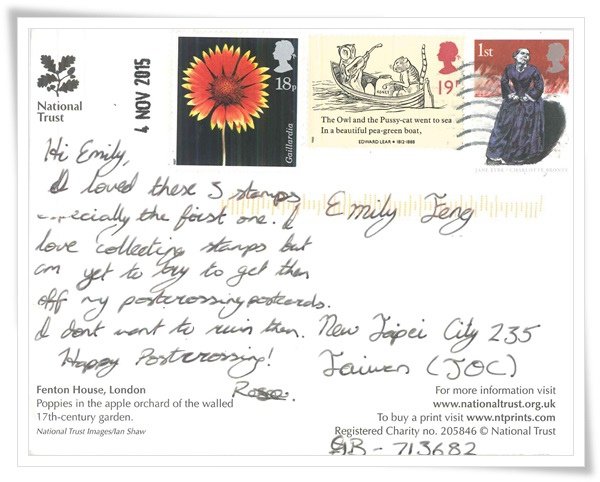 National
Trust
4 NOV 2015
18p
Gaillardia
19p
The Owl and the Pussy-cat went to sea
In a beautiful pea-green boat,
EDWARD LEAR • 1812-1888
1st
JANE EYRE • CHARLOTTE BRONTË
Hi Emily,
I loved these 3 stamps
especially the first one. I
love collecting stamps but
am yet to try to get them
off my postcrossing postcards.
I dont want to ruin them.
Happy Postcrossing!
Emily
New Taipei City 235
Taiwan (ROC)
Fenton House, London
Poppies in the apple orchard of the walled
17th-century garden.
National Trust Images/Ian Shaw
For more information visit
www.nationaltrust.org.uk
To buy a print visit www.ntprints.com
Registered Charity no. 205846 © National Trust
GB - 713682